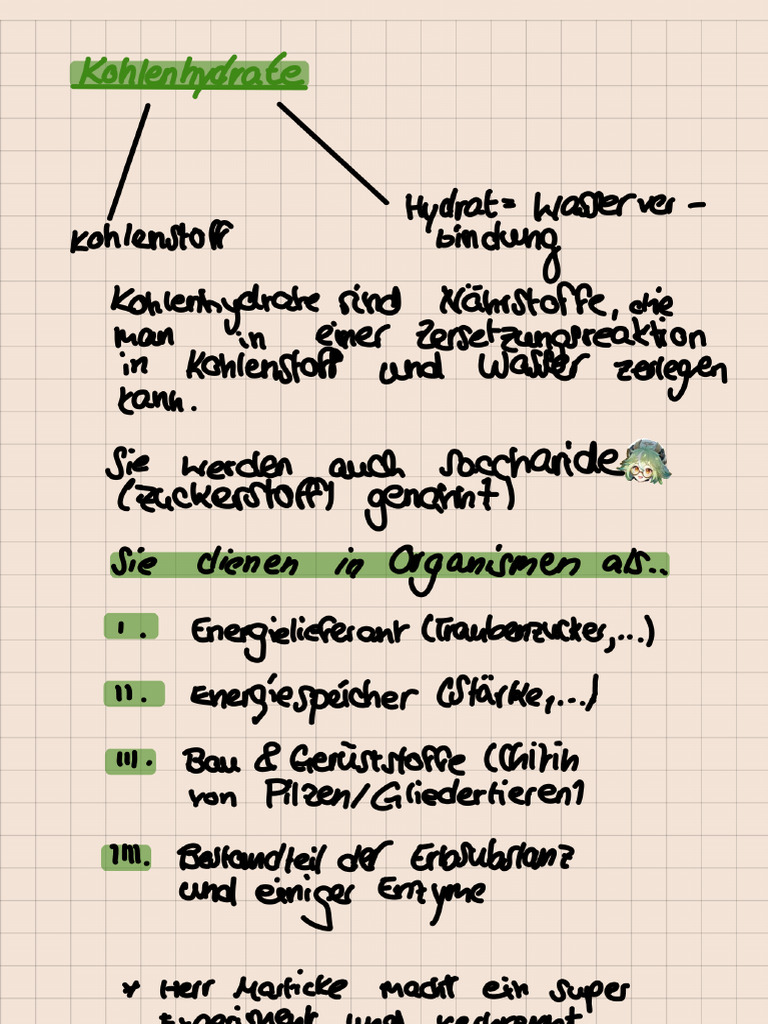 Kohlenhydrate
Kohlenstoff
Hydrat = Wasserver-
bindung
Kohlenhydrate sind Nährstoffe, die
man in einer Zersetzungsreaktion
in Kohlenstoff und Wasser zerlegen
kann.
Sie werden auch Saccharide
(Zuckerstoff) genannt)
Sie dienen in Organismen als..
I. Energielieferant (Traubenzucker,...)
II. Energiespeicher (Stärke,...)
III. Bau & Gerüststoffe (Chitin
von Pilzen/Gliedertieren)
IIII. Bestandteil der Erbsubstanz
und einiger Enzyme
* Herr macht ein super
Experiment und